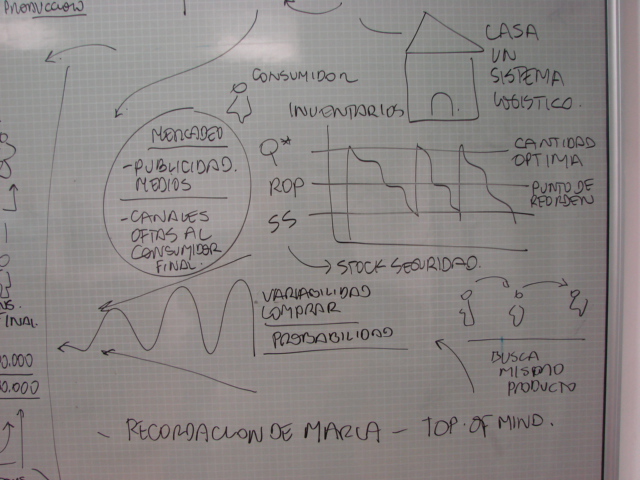 PRODUCCION
CASA
UN
SISTEMA
LOGISTICO.
CONSUMIDOR
INVENTARIOS
MERCADEO
-PUBLICIDAD.
MEDIOS
-CANALES
OFTAS AL
CONSUMIDOR
FINAL.
Q*
ROP
SS
CANTIDAD
OPTIMA
PUNTO DE
REORDEN
STOCK SEGURIDAD.
VARIABILIDAD
COMPRAR
PROBABILIDAD
BUSCA
MISMO
PRODUCTO
- RECORDACION DE MARCA - TOP OF MIND.